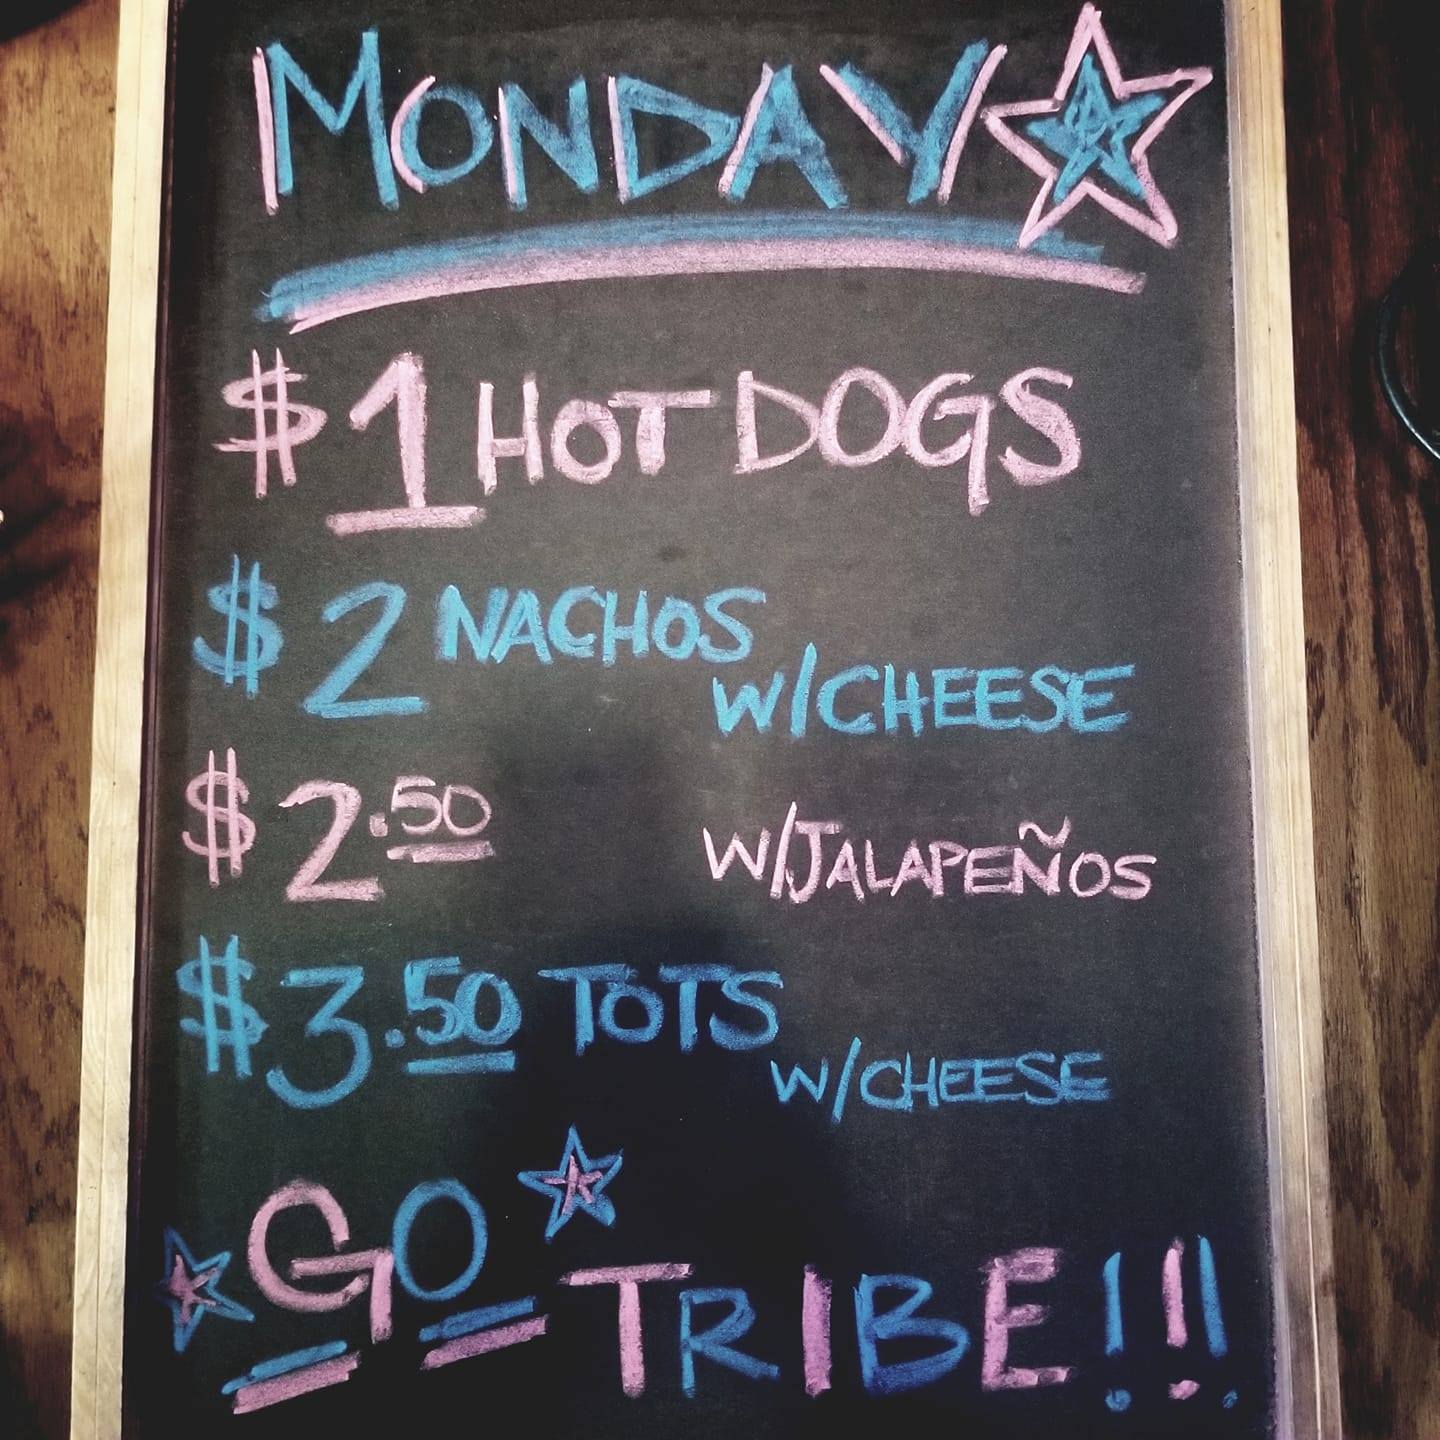 MONDAY
$1 HOT DOGS
$2 NACHOS
W/CHEESE
$2.50 W/JALAPEÑOS
$3.50 TOTS
W/CHEESE
GO
TRIBE!!!